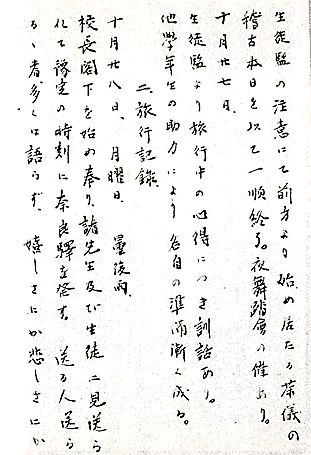 生徒監の注意にて前方より始め居たる茶儀の
稽古本日を以て一順終る。夜舞踏會の催あり。
十月廿七日、
生徒監より旅行中の心得につき訓話あり。
他學年生の助力により各自の準備漸く成る。
二、旅行記錄、
十月廿八日、月曜日、曇後雨、
校長閣下を始め奉り、諸先生及び生徒に見送ら
れて豫定の時刻に奈良驛を發す。送る人送ら
るゝ者多くは語らず、嬉しさにか悲しさにか